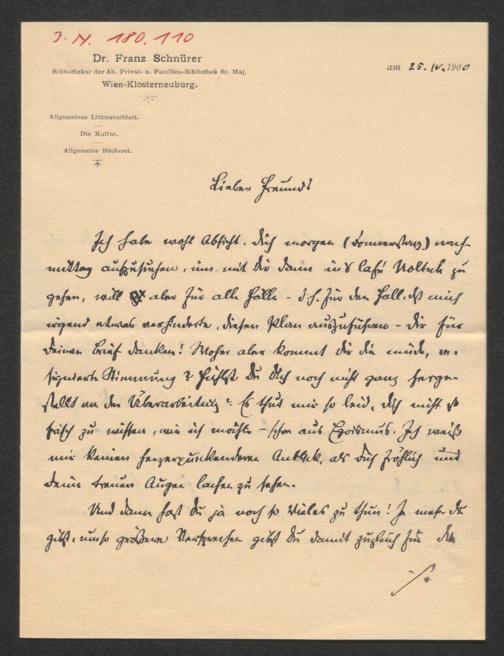 J. N. 180.110
Dr. Franz Schnürer
Bibliothekar der Ah. Privat- u. Familien-Bibliothek Sr. Maj.
Wien-Klosterneuburg.
am 25. IV. 1900
Allgemeines Litteraturblatt.
Die Kultur.
Allgemeine Bücherei.
Lieber Freund!
Ich habe wohl Absicht, Dich morgen (Donnerstag) nach-
mittag aufzusuchen, um mit Dir dann ins Café zu
gehen, will aber für alle Fälle - d. h. für den Fall, dß mich
irgend etwas verhinderte, diesen Plan auszuführen - Dir für
Deinen Brief danken! Woher aber kommt Dir die müde, re-
signierte Stimmung? Fühlst Du Dich noch nicht ganz herge-
stellt von der Überarbeitung? Es thut mir so leid, Dich nicht so
frisch zu wissen, wie ich möchte - schon aus Egoismus. Ich weiß
mir keinen herzerquickenderen Anblick, als Dich fröhlich und
Deine treuen Augen lachen zu sehen.
Und dann hast Du ja noch so Vieles zu thun! Je mehr Du
gibst, umso größere Versprechen gibst Du damit zugleich für die